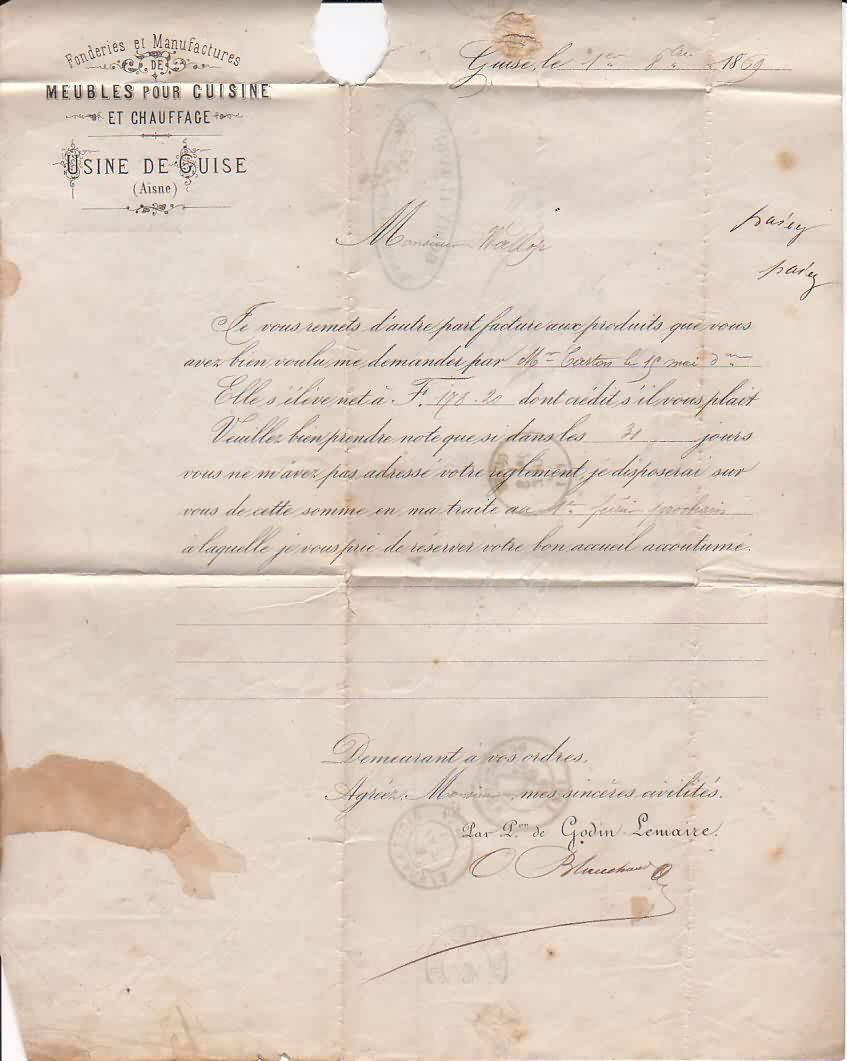 Fonderies et Manufactures
DE
MEUBLES POUR CUISINE
ET CHAUFFAGE
USINE DE GUISE
(Aisne)
Guise, le 1er 8bre 1869
Monsieur
Je vous remets d'autre part facture aux produits que vous
avez bien voulu me demander par Mr Carton le 15 mai dr
Elle s'élève net à F. 178.20 dont crédit s'il vous plait
Veuillez bien prendre note que si dans les 30 jours
vous ne m'avez pas adressé votre règlement, je disposerai sur
vous de cette somme en ma traite au prochain
à laquelle je vous prie de réserver votre bon accueil accoutumé.
Demeurant à vos ordres,
Agréez, Monsieur, mes sincères civilités.
Par Pon de Godin-Lemaire.